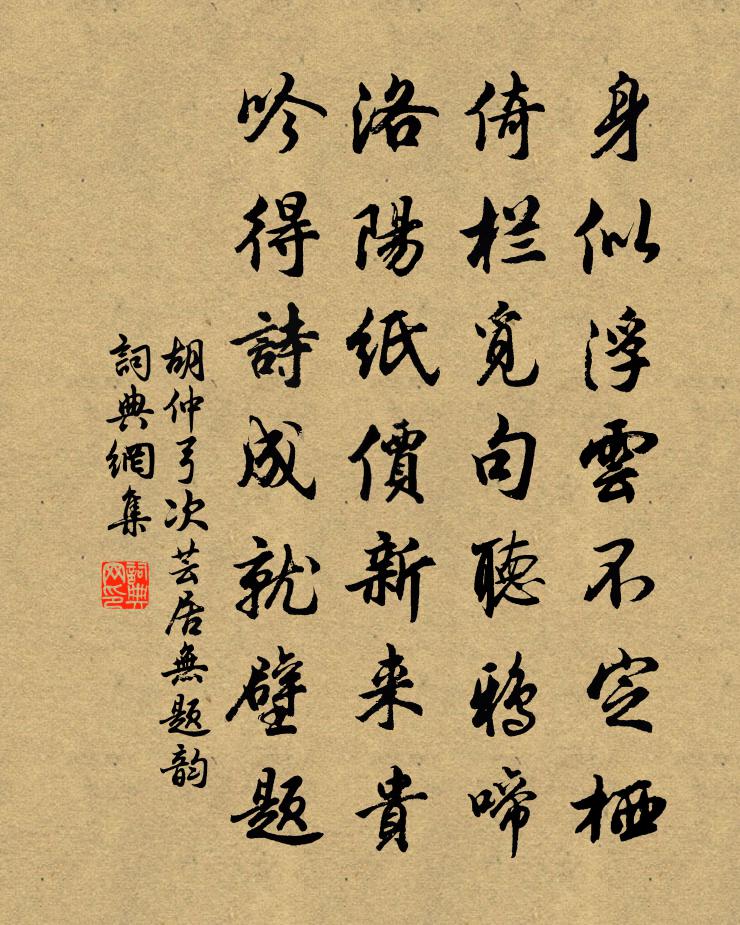 身似浮雲不定栖
倚栏覓句聽鴉啼
洛陽紙價新来貴
吟得詩成就壁题
胡仲弓次芸居無题韵
詞典網集
詞典网印